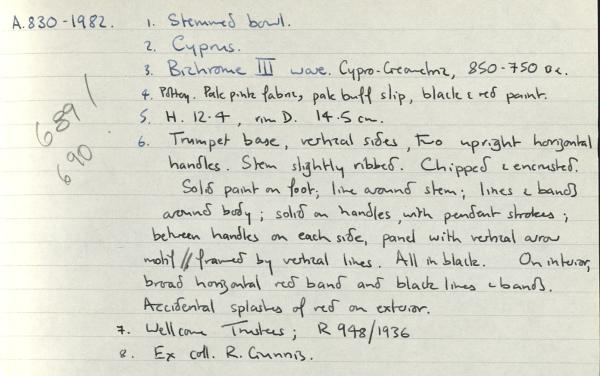 A.830-1982. 1. Stemmed bowl.
2. Cyprus.
3. Bichrome III ware. Cypro-Geometric, 850-750 BC.
4. Pottery. Pale pink fabric, pale buff slip, black & red paint.
5. H. 12.4, rim D. 14.5 cm.
6. Trumpet base, vertical sides, two upright horizontal
handles. Stem slightly ribbed. Chipped & encrusted.
Solid paint on foot; line around stem; lines & bands
around body; solid on handles, with pendent strokes;
between handles on each side, panel with vertical arrow
motif // framed by vertical lines. All in black. On interior,
broad horizontal red band and black lines & bands.
Accidental splashes of red on exterior.
7. Wellcome Trustees; R 948/1936
8. Ex coll. R. Gunnis.
689/
690